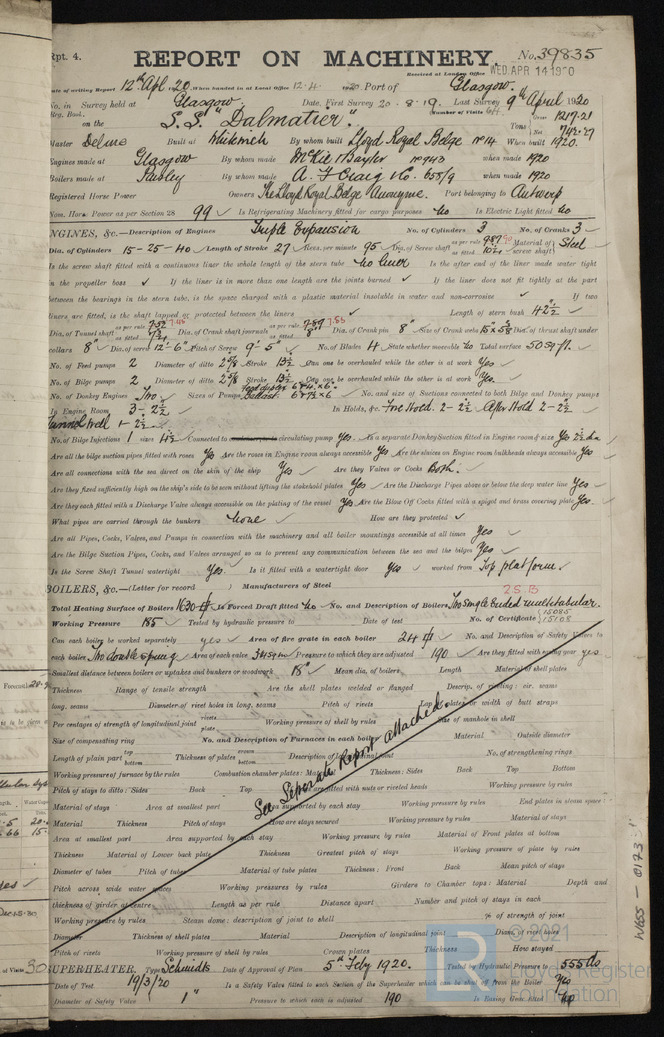 Rpt. 4.
REPORT ON MACHINERY.
No. 39835
Received at London Office
WED. APR 14 1920
Date of writing Report 12th Apl 1920. When handed in at Local Office 12.4.1920. Port of Glasgow.
No. in Survey held at Glasgow. Date, First Survey 20-8-19. Last Survey 9th April 1920
Reg. Book. (Number of Visits
on the S.S. "Dalmatier". Tons Gross 1217.21 Net 742.27
Master Delme Built at Whiteinch By whom built Lloyd Royal Belge No 14 When built 1920.
Engines made at Glasgow By whom made McKie & Baxter No 943 when made 1920
Boilers made at Paisley By whom made A. F. Craig & Co. 655/9 when made 1920
Registered Horse Power Owners The Lloyd Royal Belge Anonyme. Port belonging to Antwerp
Nom. Horse Power as per Section 28 99 Is Refrigerating Machinery fitted for cargo purposes No Is Electric Light fitted No
ENGINES, &c.—Description of Engines Triple Expansion No. of Cylinders 3 No. of Cranks 3
Dia. of Cylinders 15-25-40 Length of Stroke 27 Revs. per minute 95 Dia. of Screw shaft as per rule 9.87 as fitted 10¼ Material of screw shaft Steel
Is the screw shaft fitted with a continuous liner the whole length of the stern tube No liner Is the after end of the liner made water tight
in the propeller boss If the liner is in more than one length are the joints burned If the liner does not fit tightly at the part
between the bearings in the stern tube, is the space charged with a plastic material insoluble in water and non-corrosive If two
liners are fitted, is the shaft lapped or protected between the liners Length of stern bush 42½"
Dia. of Tunnel shaft as per rule as fitted Dia. of Crank shaft journals as per rule 7.87 as fitted 8" Dia. of Crank pin 8" Size of Crank webs 15 x 5⅛ Dia. of thrust shaft under
collars 8" Dia. of screw 12'-6" Pitch of Screw 9'-5" No. of Blades 4 State whether moveable No Total surface 50 sq ft.
No. of Feed pumps 2 Diameter of ditto 2⅝ Stroke 13½ Can one be overhauled while the other is at work Yes
No. of Bilge pumps 2 Diameter of ditto 2⅝ Stroke 13½ Can one be overhauled while the other is at work Yes.
No. of Donkey Engines Two Sizes of Pumps Feed duplex 6 x 4 x 6 Ballast 6 x 7½ x 6 No. and size of Suctions connected to both Bilge and Donkey pumps
In Engine Room 3-2½ In Holds, &c. Fore Hold. 2-2½ After Hold 2-2½
Tunnel Well 1-2½
No. of Bilge Injections 1 sizes 4½ Connected to circulating pump Yes Is a separate Donkey Suction fitted in Engine room & size Yes 2½ dia
Are all the bilge suction pipes fitted with roses Yes Are the roses in Engine room always accessible Yes Are the sluices on Engine room bulkheads always accessible Yes
Are all connections with the sea direct on the skin of the ship Yes Are they Valves or Cocks Both.
Are they fixed sufficiently high on the ship's side to be seen without lifting the stokehold plates Yes Are the Discharge Pipes above or below the deep water line Yes
Are they each fitted with a Discharge Valve always accessible on the plating of the vessel Yes Are the Blow Off Cocks fitted with a spigot and brass covering plate Yes.
What pipes are carried through the bunkers None How are they protected
Are all Pipes, Cocks, Valves, and Pumps in connection with the machinery and all boiler mountings accessible at all times Yes
Are the Bilge Suction Pipes, Cocks, and Valves arranged so as to prevent any communication between the sea and the bilges Yes
Is the Screw Shaft Tunnel watertight Yes. Is it fitted with a watertight door Yes worked from Top platform.
BOILERS, &c.—(Letter for record ) Manufacturers of Steel
2 S.B
Total Heating Surface of Boilers 1630 Is Forced Draft fitted No No. and Description of Boilers Two Single Ended multitubular.
Working Pressure 185 Tested by hydraulic pressure to Date of test No. of Certificate 15085 15108
Can each boiler be worked separately yes Area of fire grate in each boiler 24 No. and Description of Safety Valves to
each boiler Two double spring Area of each valve Pressure to which they are adjusted 190 Are they fitted with easing gear yes
Smallest distance between boilers or uptakes and bunkers or woodwork 18" Mean dia. of boilers Length Material of shell plates
Thickness Range of tensile strength Are the shell plates welded or flanged Descrip. of riveting: cir. seams
long. seams Diameter of rivet holes in long. seams Pitch of rivets Lap of plates or width of butt straps
Per centages of strength of longitudinal joint rivets plate Working pressure of shell by rules Size of manhole in shell
Size of compensating ring No. and Description of Furnaces in each boiler Material Outside diameter
Length of plain part top bottom Thickness of plates crown bottom Description of longitudinal joint No. of strengthening rings
Working pressure of furnace by the rules Combustion chamber plates: Material Thickness: Sides Back Top Bottom
Pitch of stays to ditto: Sides Back Top If stays are fitted with nuts or riveted heads Working pressure by rules
See Seperate Report attached.
Material of stays Area at smallest part Area supported by each stay Working pressure by rules End plates in steam space:
Material Thickness Pitch of stays How are stays secured Working pressure by rules Material of stays
Area at smallest part Area supported by each stay Working pressure by rules Material of Front plates at bottom
Thickness Material of Lower back plate Thickness Greatest pitch of stays Working pressure of plate by rules
Diameter of tubes Pitch of tubes Material of tube plates Thickness: Front Back Mean pitch of stays
Pitch across wide water spaces Working pressures by rules Girders to Chamber tops: Material Depth and
thickness of girder at centre Length as per rule Distance apart Number and pitch of stays in each
Working pressure by rules Steam dome: description of joint to shell % of strength of joint
Diameter Thickness of shell plates Material Description of longitudinal joint Diam. of rivet holes
Pitch of rivets Working pressure of shell by rules Crown plates Thickness How stayed
SUPERHEATER. Type Schmidts Date of Approval of Plan 5th Feby 1920. Tested by Hydraulic Pressure to 555 lbs
Date of Test 19/3/20 Is a Safety Valve fitted to each Section of the Superheater which can be shut off from the Boiler Yes
Diameter of Safety Valve 1" Pressure to which each is adjusted 190 Is Easing Gear fitted Yes
W655-0173
© 2021
LR
Lloyd's Register
Foundation